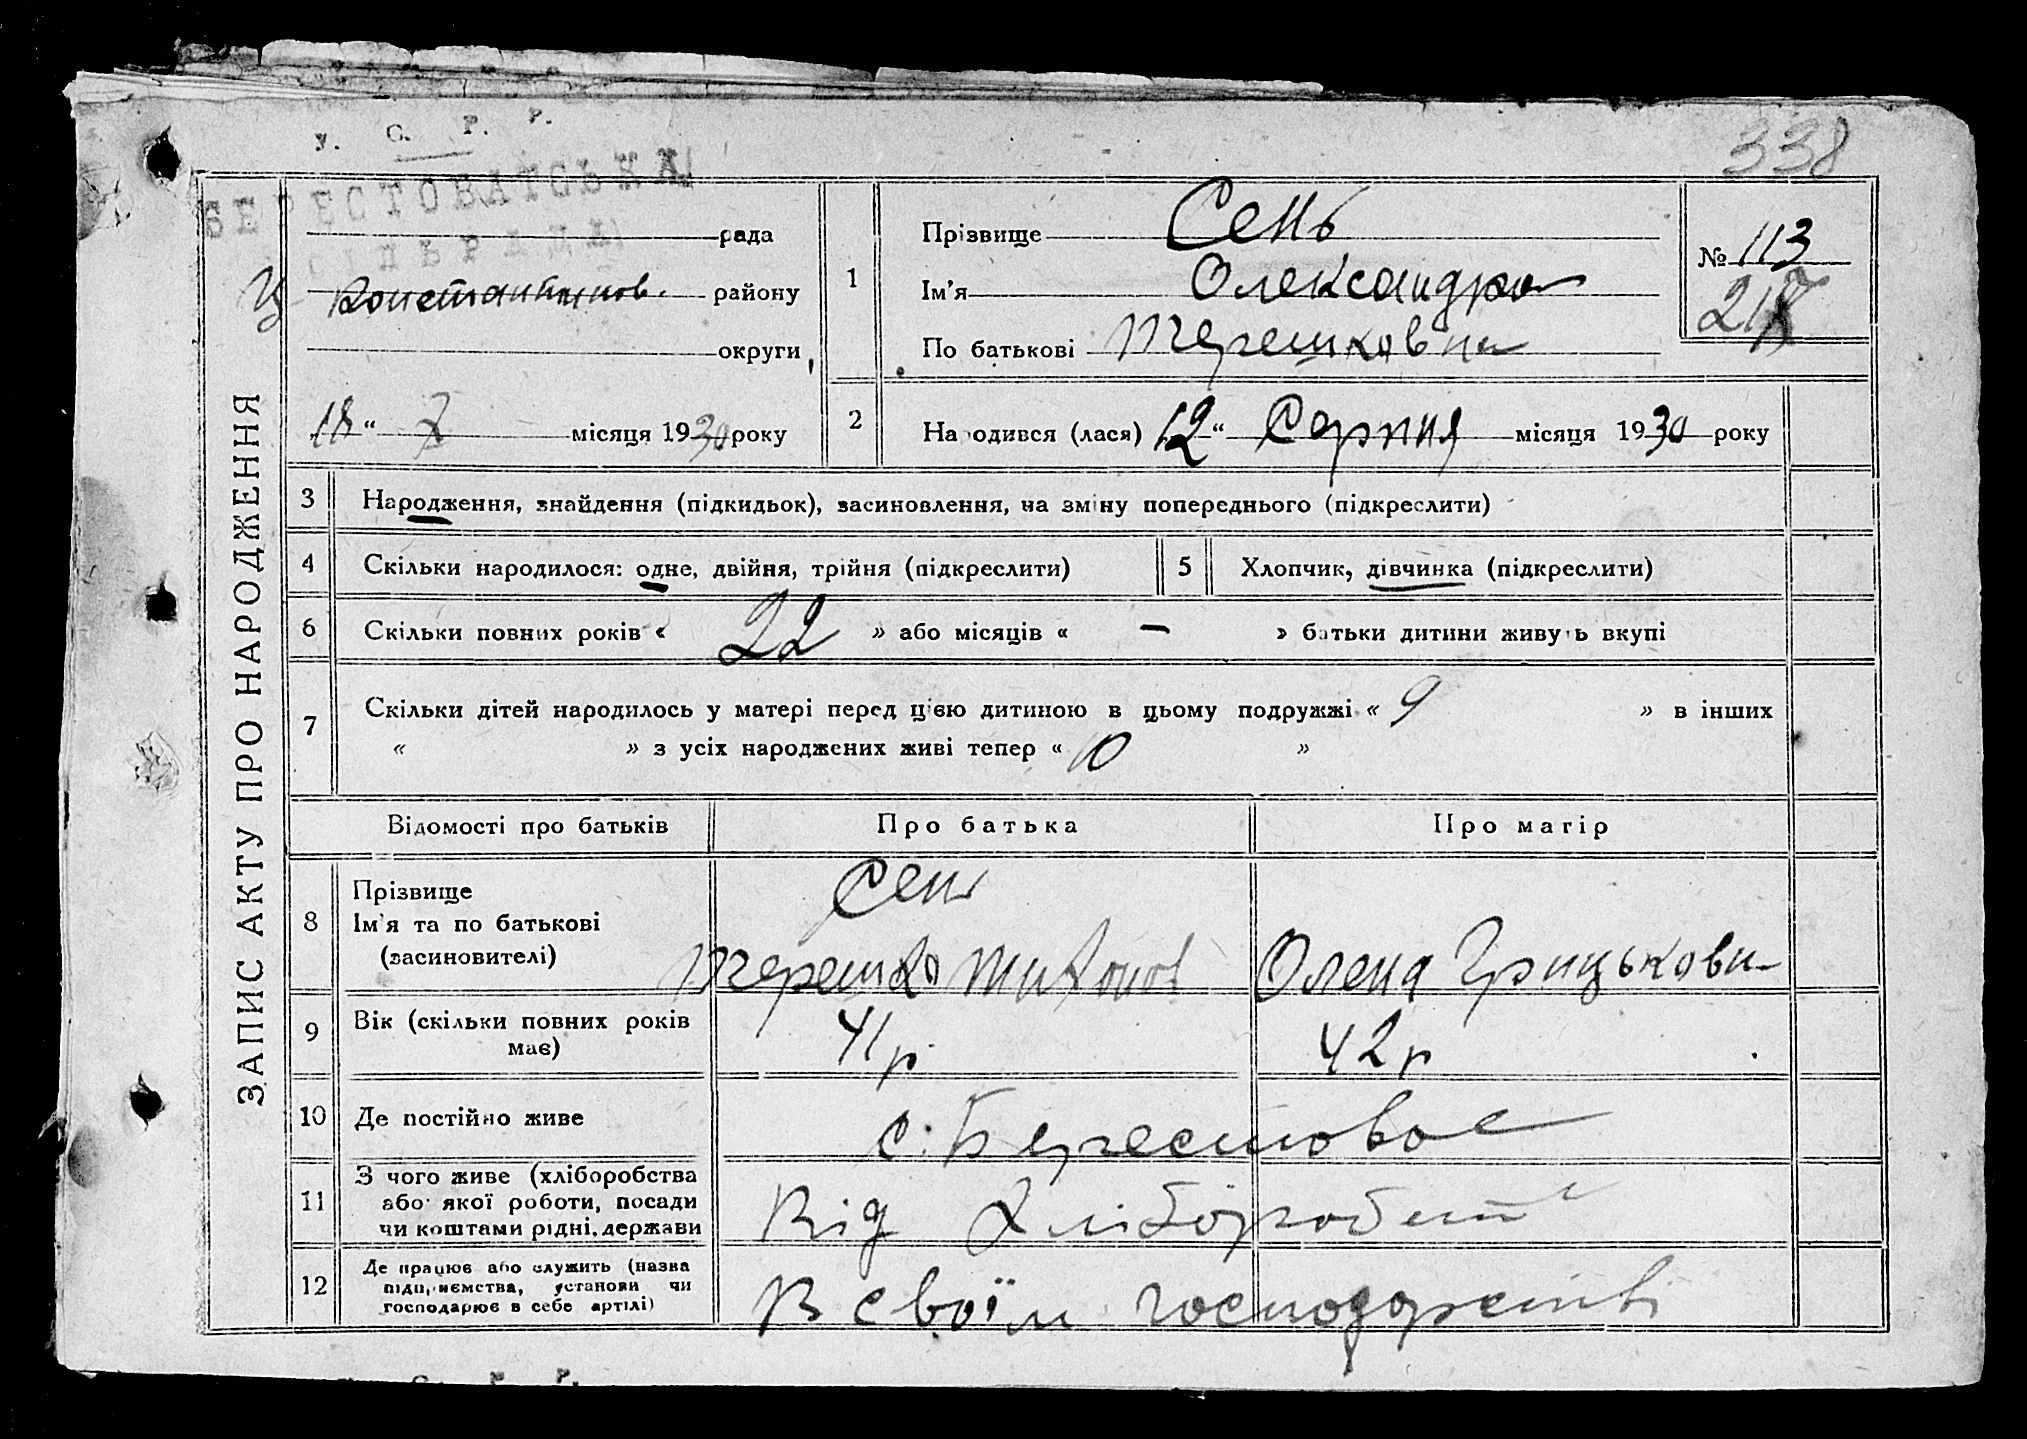 338
У. С. Р. Р.
БЕРЕСТОВАТСЬКА
СІЛЬРАДА
рада
Константинов. району
округи
18 “ X місяця 1930 року
ЗАПИС АКТУ ПРО НАРОДЖЕННЯ
1 Прізвище Сень
Ім'я Олександра
По батькові Терешковна
№ 113
2 Народився (лася) 12 “ Серпня місяця 1930 року
3 Народження, знайдення (підкидьок), засиновлення, на зміну попереднього (підкреслити)
4 Скільки народилося: одне, двійня, трійня (підкреслити) 5 Хлопчик, дівчинка (підкреслити)
6 Скільки повних років « 22 » або місяців « — » батьки дитини живуть вкупі
7 Скільки дітей народилось у матері перед цією дитиною в цьому подружжі « 9 » в інших
« » з усіх народжених живі тепер « 10 »
Відомості про батьків Про батька Про матір
8 Прізвище
Ім'я та по батькові
(засиновителі)
Сень
Терешко Тихонов Олена Грицькови
9 Вік (скільки повних років
має)
41 р. 42 р
10 Де постійно живе с. Берестовое
11 З чого живе (хліборобства
або якої роботи, посади
чи коштами рідні, держави
Від Хліборобст
12 Де працює або служить (назва
підприємства, установи чи
господарює в себе артілі)
В своїм господарстві
С. Р. Р.